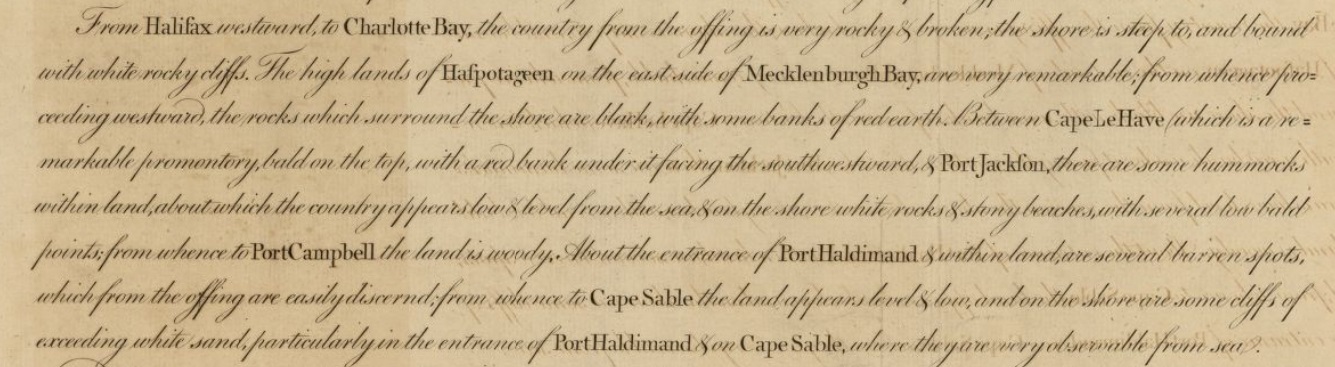 From Halifax westward, to Charlotte Bay, the country from the offing is very rocky & broken; the shore is steep to, and bound
with white rocky cliffs. The high lands of Haſpotageen on the east side of Mecklenburgh Bay, are very remarkable; from whence pro=
ceeding westward, the rocks which surround the shore are black, with some banks of red earth. Between Cape Le Have (which is a re=
markable promontory, bald on the top, with a red bank under it facing the southwestward, & Port Jackſon, there are some hummocks
within land, about which the country appears low & level from the sea, & on the shore white rocks & stony beaches, with several low bald
points; from whence to Port Campbell the land is woody. About the entrance of Port Haldimand & within land, are several barren spots,
which from the offing are easily discernd; from whence to Cape Sable the land appears level & low, and on the shore are some cliffs of
exceeding white sand, particularly in the entrance of Port Haldimand & on Cape Sable, where they are very observable from sea.